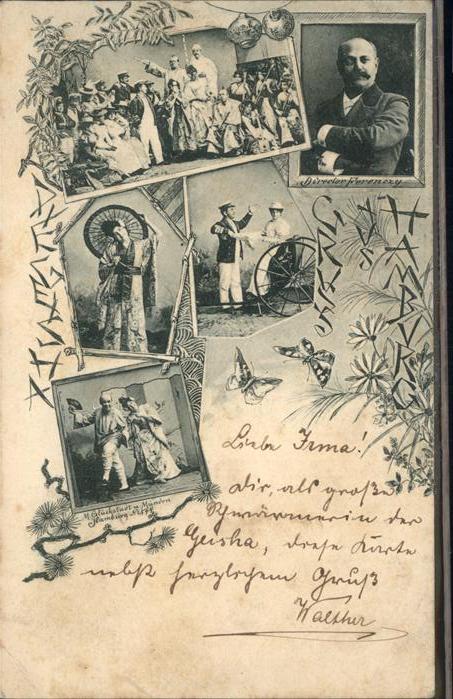 Director Ferenczy
GRUSS
AUS
HAMBURG
M. Glückstadt u. Münden
Hamburg
Liebe Irma!
Dir, als große
Schwärmerin der
Geisha, diese Karte
nebst herzlichem Gruß
Walther